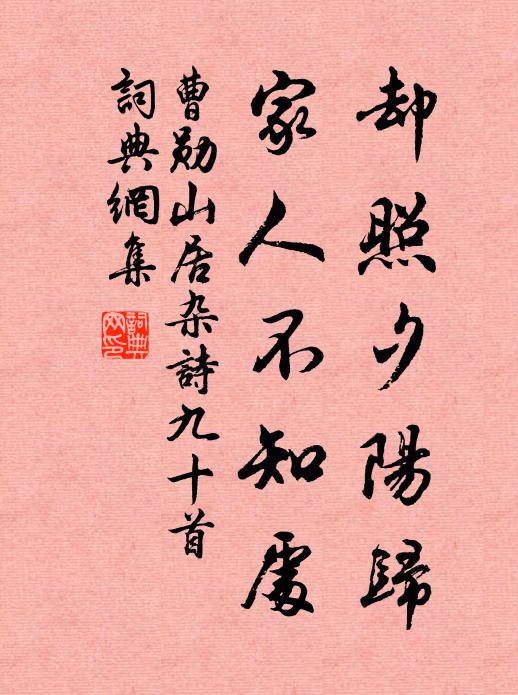 却照夕陽歸
家人不知處
曹勛山居杂詩九十首
詞典網集
詞典網印